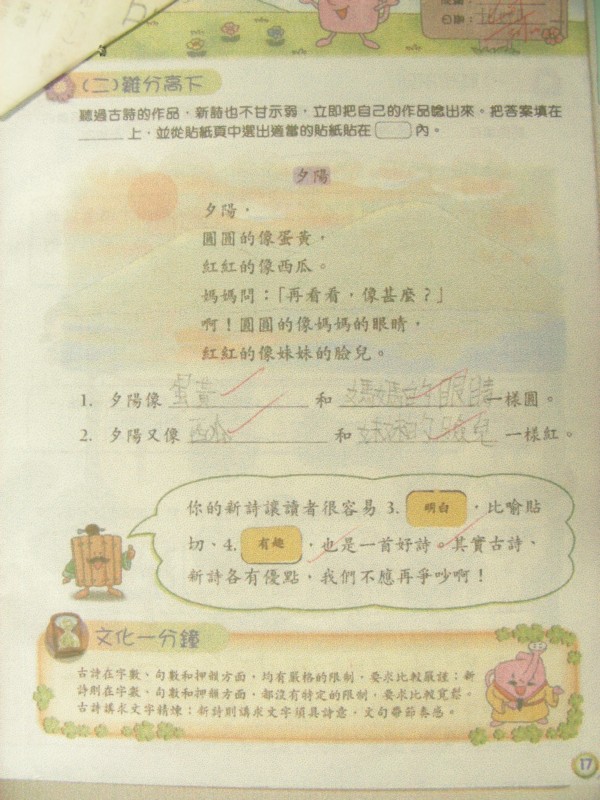 日期：
(二)難分高下
聽過古詩的作品，新詩也不甘示弱，立即把自己的作品唸出來。把答案填在
上，並從貼紙頁中選出適當的貼紙貼在 內。
夕陽
夕陽，
圓圓的像蛋黃，
紅紅的像西瓜。
媽媽問：「再看看，像甚麼？」
啊！圓圓的像媽媽的眼睛，
紅紅的像妹妹的臉兒。
1. 夕陽像 蛋黃 和 媽媽的眼睛 一樣圓。
2. 夕陽又像 西瓜 和 妹妹的臉兒 一樣紅。
你的新詩讓讀者很容易 3. 明白 ，比喻貼
切、4. 有趣 ，也是一首好詩。其實古詩、
新詩各有優點，我們不應再爭吵啊！
文化一分鐘
古詩在字數、句數和押韻方面，均有嚴格的限制，要求比較嚴謹；新
詩則在字數、句數和押韻方面，都沒有特定的限制，要求比較寬鬆。
古詩講求文字精煉；新詩則講求文字須具詩意，文句帶節奏感。
17